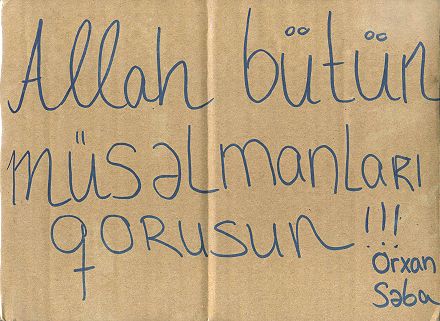 Allah bütün
müsəlmanları
qorusun !!!
Orxan
Səba